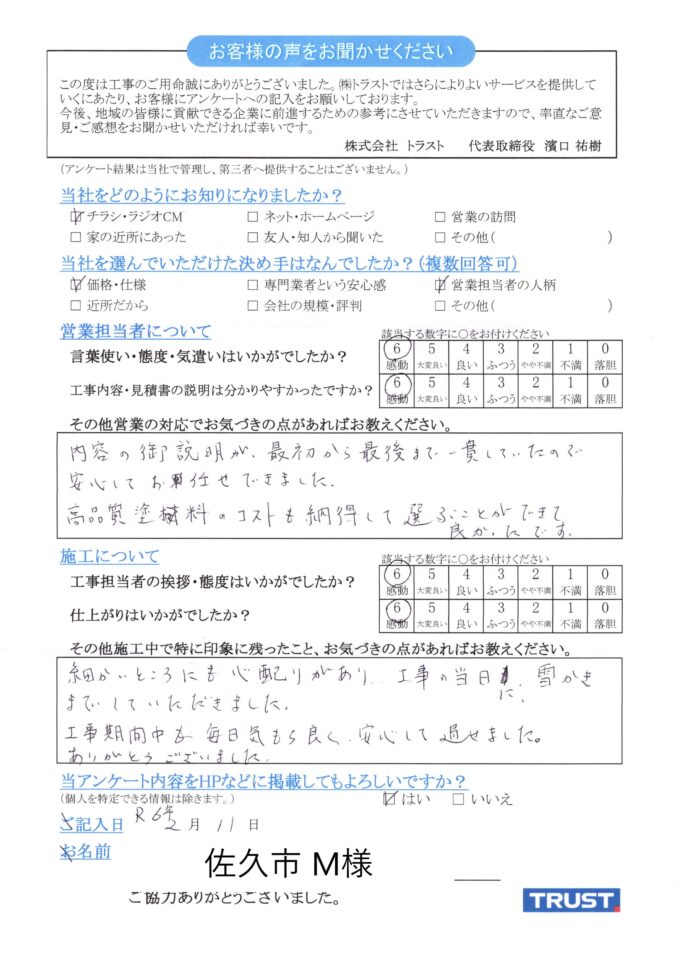 お客様の声をお聞かせください
この度は工事のご用命誠にありがとうございました。㈱トラストではさらによりよいサービスを提供して
いくにあたり、お客様にアンケートへの記入をお願いしております。
今後、地域の皆様に貢献できる企業に前進するための参考にさせていただきますので、率直なご意
見・ご感想をお聞かせいただければ幸いです。
株式会社 トラスト 代表取締役 濱口 祐樹
(アンケート結果は当社で管理し、第三者へ提供することはございません。)
当社をどのようにお知りになりましたか？
☑ チラシ・ラジオCM □ ネット・ホームページ □ 営業の訪問
□ 家の近所にあった □ 友人・知人から聞いた □ その他( )
当社を選んでいただけた決め手はなんでしたか？(複数回答可)
☑ 価格・仕様 □ 専門業者という安心感 ☑ 営業担当者の人柄
□ 近所だから □ 会社の規模・評判 □ その他( )
営業担当者について 該当する数字に○をお付けください
言葉使い・態度・気遣いはいかがでしたか？ 6 5 4 3 2 1 0
感動 大変良い 良い ふつう やや不満 不満 落胆
工事内容・見積書の説明は分かりやすかったですか？ 6 5 4 3 2 1 0
感動 大変良い 良い ふつう やや不満 不満 落胆
その他営業の対応でお気づきの点があればお教えください。
内容の御説明が、最初から最後まで一貫していたので
安心してお任せできました。
高品質塗料のコストも納得して選ぶことができて
良かったです。
施工について 該当する数字に○をお付けください
工事担当者の挨拶・態度はいかがでしたか？ 6 5 4 3 2 1 0
感動 大変良い 良い ふつう やや不満 不満 落胆
仕上がりはいかがでしたか？ 6 5 4 3 2 1 0
感動 大変良い 良い ふつう やや不満 不満 落胆
その他施工中で特に印象に残ったこと、お気づきの点があればお教えください。
細かいところにも心配りがあり、工事の当日に、雪かき
までしていただきました。
工事期間中も毎日気もち良く、安心して過せました。
ありがとうございました。
当アンケート内容をHPなどに掲載してもよろしいですか？
(個人を特定できる情報は除きます。) ☑ はい □ いいえ
ご記入日 R6年 2月 11日
お名前 佐久市 M様
ご協力ありがとうございました。
TRUST.